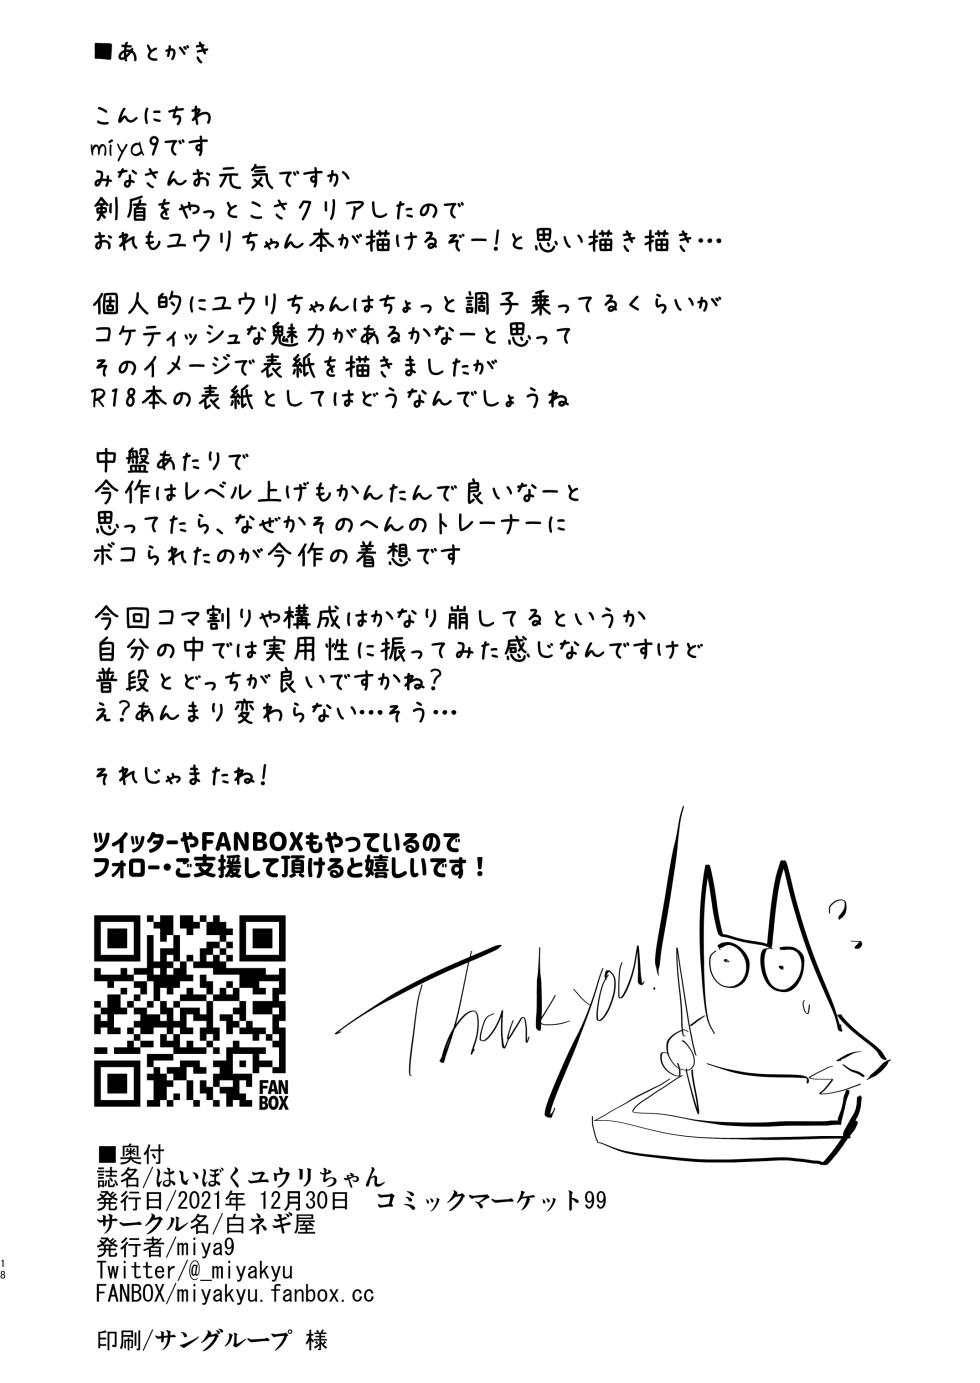 ■あとがき
こんにちわ
miya9です
みなさんお元気ですか
剣盾をやっとこさクリアしたので
おれもユウリちゃん本が描けるぞー!と思い描き描き…
個人的にユウリちゃんはちょっと調子乗ってるくらいが
コケティッシュな魅力があるかなーと思って
そのイメージで表紙を描きましたが
R18本の表紙としてはどうなんでしょうね
中盤あたりで
今作はレベル上げもかんたんで良いなーと
思ってたら、なぜかそのへんのトレーナーに
ボコられたのが今作の着想です
今回コマ割りや構成はかなり崩してるというか
自分の中では実用性に振ってみた感じなんですけど
普段とどっちが良いですかね?
え?あんまり変わらない…そう…
それじゃまたね!
ツイッターやFANBOXもやっているので
フォロー・ご支援して頂けると嬉しいです!
FAN
BOX
Thank you!
■奥付
誌名/はいぼくユウリちゃん
発行日/2021年 12月30日 コミックマーケット99
サークル名/白ネギ屋
発行者/miya9
Twitter/@_miyakyu
FANBOX/miyakyu.fanbox.cc
印刷/サングループ 様
18